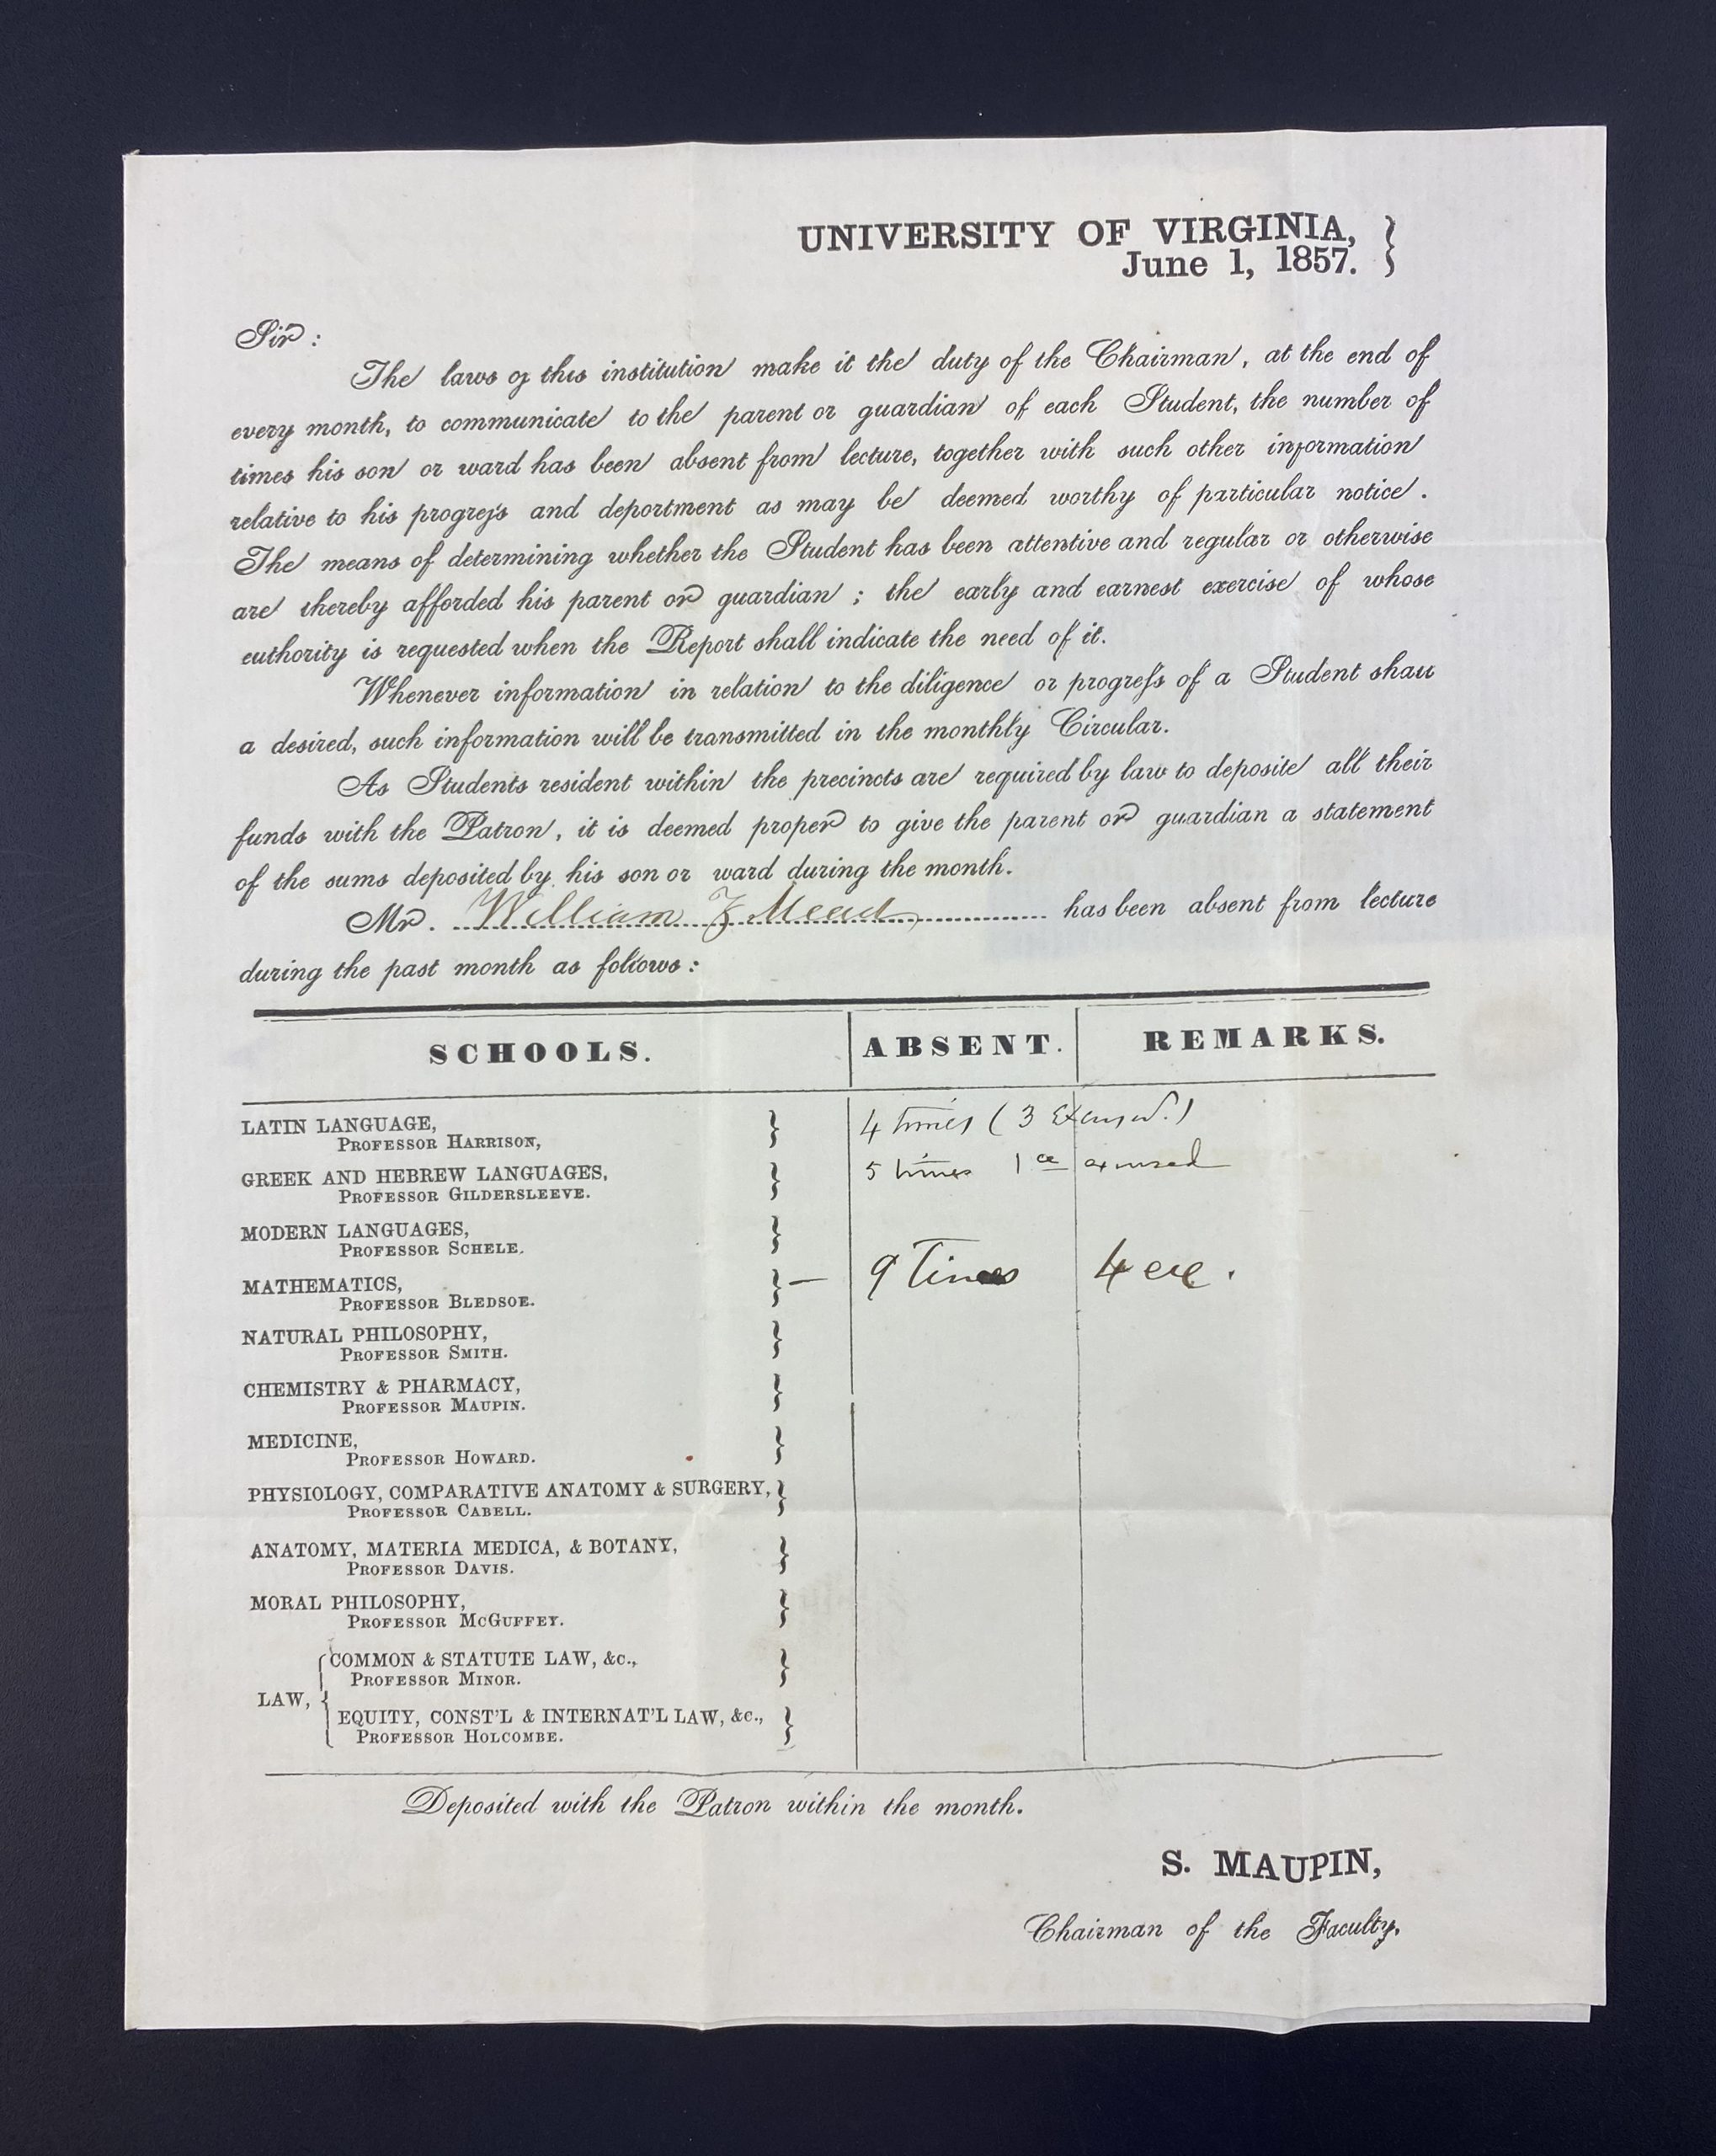 UNIVERSITY OF VIRGINIA,
June 1, 1857.
Sir:
The laws of this institution make it the duty of the Chairman, at the end of
every month, to communicate to the parent or guardian of each Student, the number of
times his son or ward has been absent from lecture, together with such other information
relative to his progress and deportment as may be deemed worthy of particular notice.
The means of determining whether the Student has been attentive and regular or otherwise
are thereby afforded his parent or guardian; the early and earnest exercise of whose
authority is requested when the Report shall indicate the need of it.
Whenever information in relation to the diligence or progress of a Student shall
a desired, such information will be transmitted in the monthly Circular.
As Students resident within the precincts are required by law to deposite all their
funds with the Patron, it is deemed proper to give the parent or guardian a statement
of the sums deposited by his son or ward during the month.
Mr. William Z Mead has been absent from lecture
during the past month as follows:
SCHOOLS. ABSENT. REMARKS.
LATIN LANGUAGE,
PROFESSOR HARRISON, 4 times (3 Excused.)
GREEK AND HEBREW LANGUAGES,
PROFESSOR GILDERSLEEVE. 5 times 1ce excused
MODERN LANGUAGES,
PROFESSOR SCHELE.
MATHEMATICS, — 9 Times 4 exc.
PROFESSOR BLEDSOE.
NATURAL PHILOSOPHY,
PROFESSOR SMITH.
CHEMISTRY & PHARMACY,
PROFESSOR MAUPIN.
MEDICINE,
PROFESSOR HOWARD.
PHYSIOLOGY, COMPARATIVE ANATOMY & SURGERY,
PROFESSOR CABELL.
ANATOMY, MATERIA MEDICA, & BOTANY,
PROFESSOR DAVIS.
MORAL PHILOSOPHY,
PROFESSOR MCGUFFEY.
LAW,
COMMON & STATUTE LAW, &c.,
PROFESSOR MINOR.
EQUITY, CONST'L & INTERNAT'L LAW, &c.,
PROFESSOR HOLCOMBE.
Deposited with the Patron within the month.
S. MAUPIN,
Chairman of the Faculty.